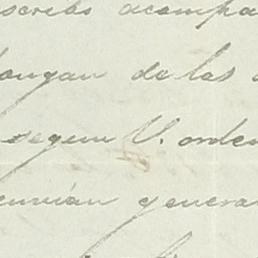 scribs acompa
longan de las
segun V. orden
reunión genera